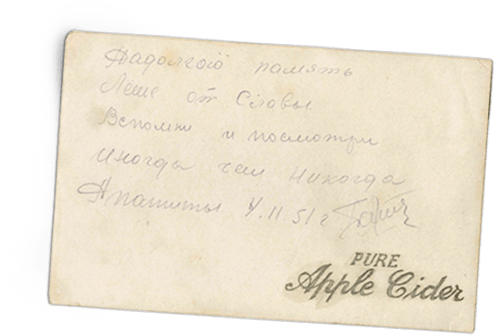 Надолгою память
Леше от Славы
Вспомни и посмотри
иногда чем никогда
Апатиты 4.11.51 г
PURE
Apple Cider